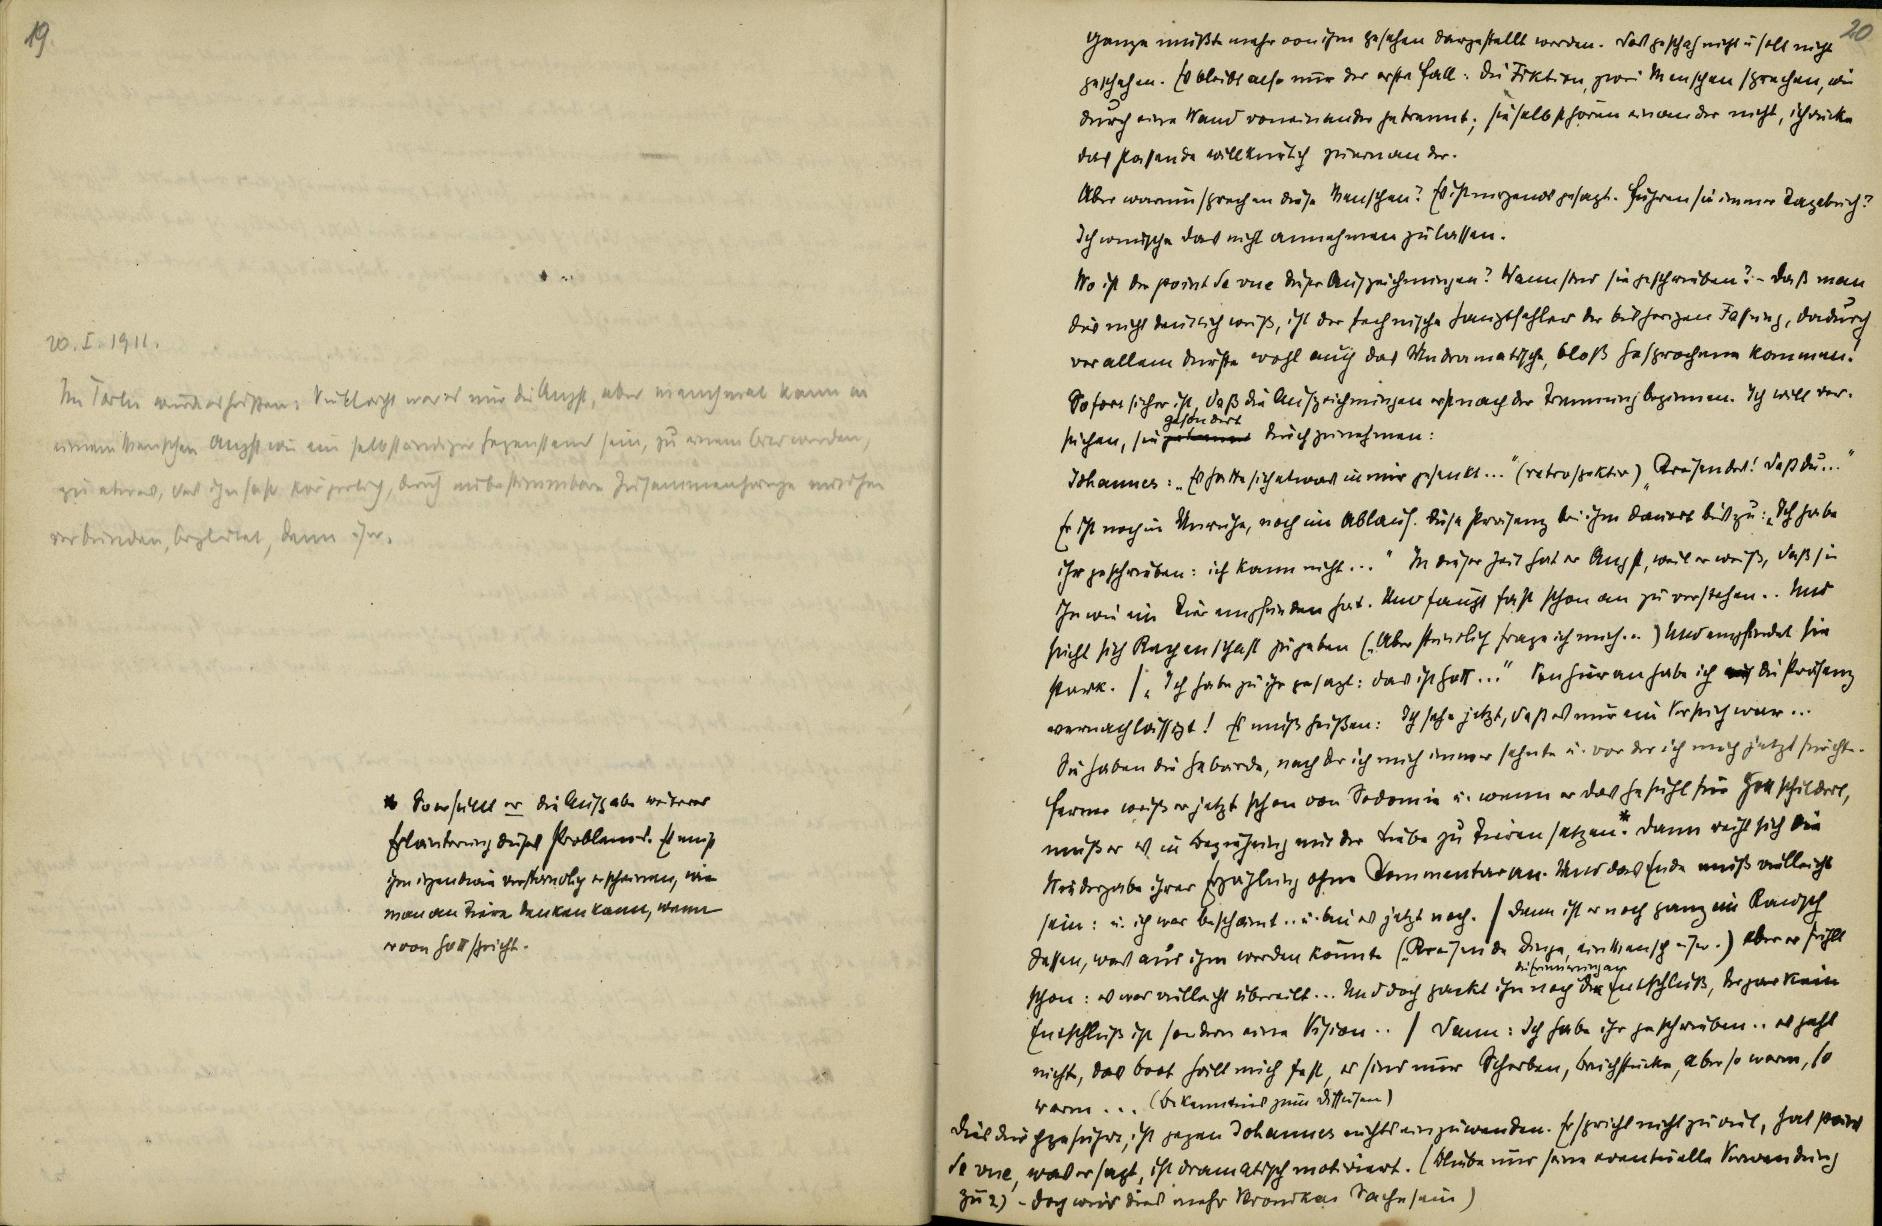 19
20. I. 1911.
Im Törleß würde es heißen: Vielleicht war es nur die Angst, aber manchmal kann in
einem Menschen Angst wie ein selbständiger Gegenstand sein, zu einem Wesen werden,
zu etwas, das ihn fast körperlich, durch unbestimmbare Zusammenhänge mit ihm
verbunden, begleitet, dann usw.
* So erfüllt er die Aufgabe weiterer
Erläuterung dieses Problems. Es muß
ihm irgendwie verständlich erscheinen, wie
man an Tiere denken kann, wenn
er von Gott spricht.
20
Ganze müßte mehr von ihm gesehen dargestellt werden. Das geschah nicht u soll nicht
geschehen. Es bleibt also nur der erste Fall: Die Fiktion, zwei Menschen sprechen, wie
durch eine Wand voneinander getrennt; sie selbst hören einander nicht, ich rücke
das Passende willkürlich zueinander.
Aber warum sprechen diese Menschen? Es ist nirgends gesagt. Führen sie immer Tagebuch?
Ich wünsche das nicht annehmen zu lassen.
Wo ist der point de vue dieser Aufzeichnungen? Wann sind sie geschrieben? – Daß man
dies nicht deutlich weiß, ist der technische Hauptfehler der bisherigen Fassung, dadurch
vor allem dürfte wohl auch das Undramatische, bloß Gesprochene kommen!
Sofort sicher ist, daß die Aufzeichnungen erst nach der Trennung beginnen. Ich will ver-
suchen, sie gesondert durchzunehmen:
Johannes: „Es hatte sich etwas in mir gesenkt..." (retrospektiv) „Kreisendes! Daß du..."
Er ist noch in Unruhe, noch im Ablauf. Diese Präsenz bei ihm dauert bis zu: „Ich habe
ihr geschrieben: ich kann nicht..." In dieser Zeit hat er Angst, weil er weiß, daß sie
ihn wie ein Tier empfunden hat. Und fängt fast schon an zu verstehen.. Und
sucht sich Rechenschaft zu geben („Aber stündlich frage ich mich..) Und empfindet sie
stark. / „Ich habe zu ihr gesagt: das ist Gott..." Von hier an habe ich die Präsenz
vernachlässigt! Es muß heißen: Ich sehe jetzt, daß es nur ein Versuch war..
Sie haben die Gebärde, nach der ich mich immer sehnte u. vor der ich mich jetzt fürchte.
Ferner weiß er jetzt schon von Sodomie u. wenn er das Gefühl für Gott schildert,
muß er es in Beziehung mit der Liebe zu Tieren setzen.* Dann reiht sich die
Wiedergabe ihrer Erzählung ohne Kommentar an. Und das Ende muß vielleicht
sein: u. ich war beschämt.. u. bin es jetzt noch. / Dann ist er noch ganz im Rausch
dessen, was aus ihm werden könnte („Kreisende Dinge, ein Mensch usw.) aber er fühlt
schon: es war vielleicht übereilt... Und doch packt ihn noch die Erinnerung an den Entschluß, der gar kein
Entschluß ist sondern eine Vision.. / Dann: Ich habe ihr geschrieben.. es geht
nicht, das Boot hält mich fest, es sind nur Scherben, Bruchstücke, aber so warm, so
warm... (Bekenntnis zum Diffusen)
Dies durchgeführt, ist gegen Johannes nichts einzuwenden. Er spricht nicht zu viel, hat point
de vue, was er sagt, ist dramatisch motiviert. (Bliebe nur seine eventuelle Verwendung
zu 2) – doch wird dies mehr Veronikas Sache sein)